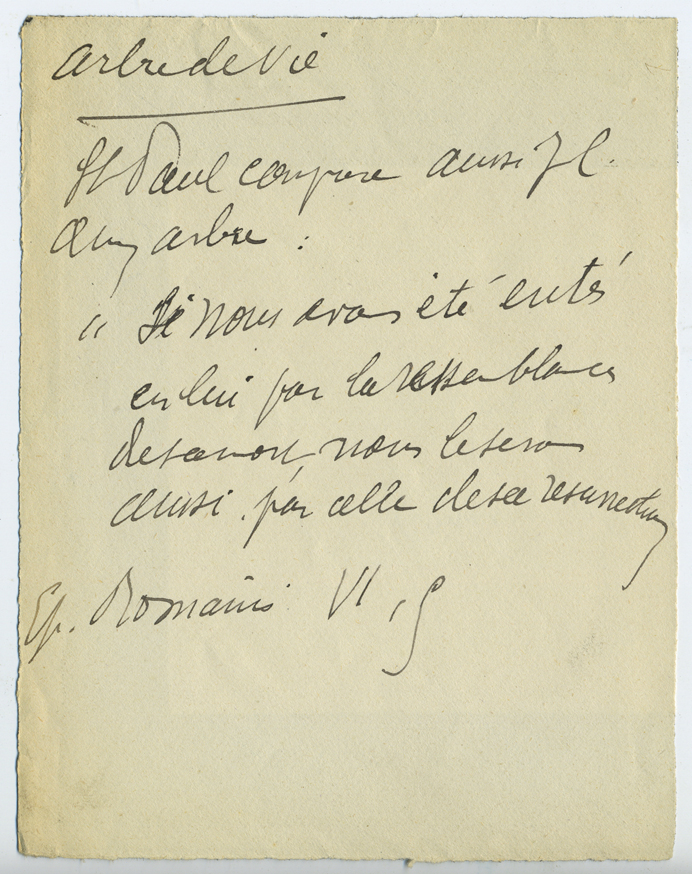 arbre de Vie
St Paul compare aussi J C.
à un arbre :
" Si nous avons été entés
en lui par la ressemblance
de sa mort, nous le serons
aussi par celle de sa résurrection
Ep. Romains VI, 5